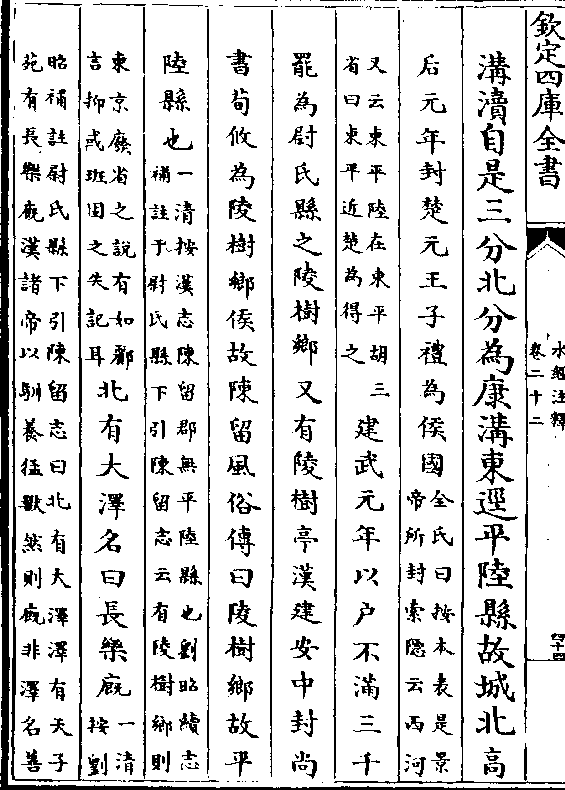 欽定四庫全書
水經注釋
卷二十二
四十四
溝瀆自是三分北分為康溝東逕平陸縣故城北高
后元年封楚元王子禮為侯國全氏曰按本表是景
帝所封索隱云西河
又云東平陸在東平胡三
省曰東平近楚為得之
建武元年以户不滿三千
罷為尉氏縣之陵樹鄉又有陵樹亭漢建安中封尚
書荀攸為陵樹鄉侯故陳留風俗傳曰陵樹鄉故平
陸縣也一清按漢志陳留郡無平陸縣也劉昭續志
補註于尉氏縣下引陳留志云有陵樹鄉則
東京廢省之説有如酈
言抑或班固之失記耳
北有大澤名曰長樂廐一清
按劉
昭補註尉氏縣下引陳留志曰北有大澤澤有天子
苑有長樂廐漢諸帝以馴養猛獸然則廐非澤名善